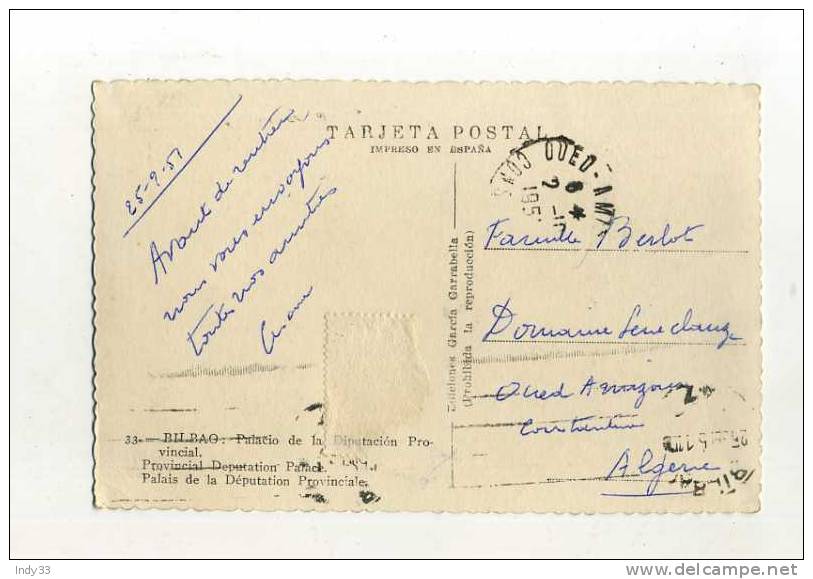 TARJETA POSTAL
IMPRESO EN ESPAÑA
25-9-51
Avant de rentrer
nous vous envoyons
toutes nos amitiés
OUED-AM
CONS
2-10
195
Famille Berlot
Domaine
Oued
Constantine
Algérie
Ediciones García Garrabella
(Prohibida la reproducción)
33 - BILBAO: Palacio de la Diputación Pro-
vincial.
Provincial Deputation Palace.
Palais de la Députation Provinciale.
BILBA
Indy33
delcampe.net